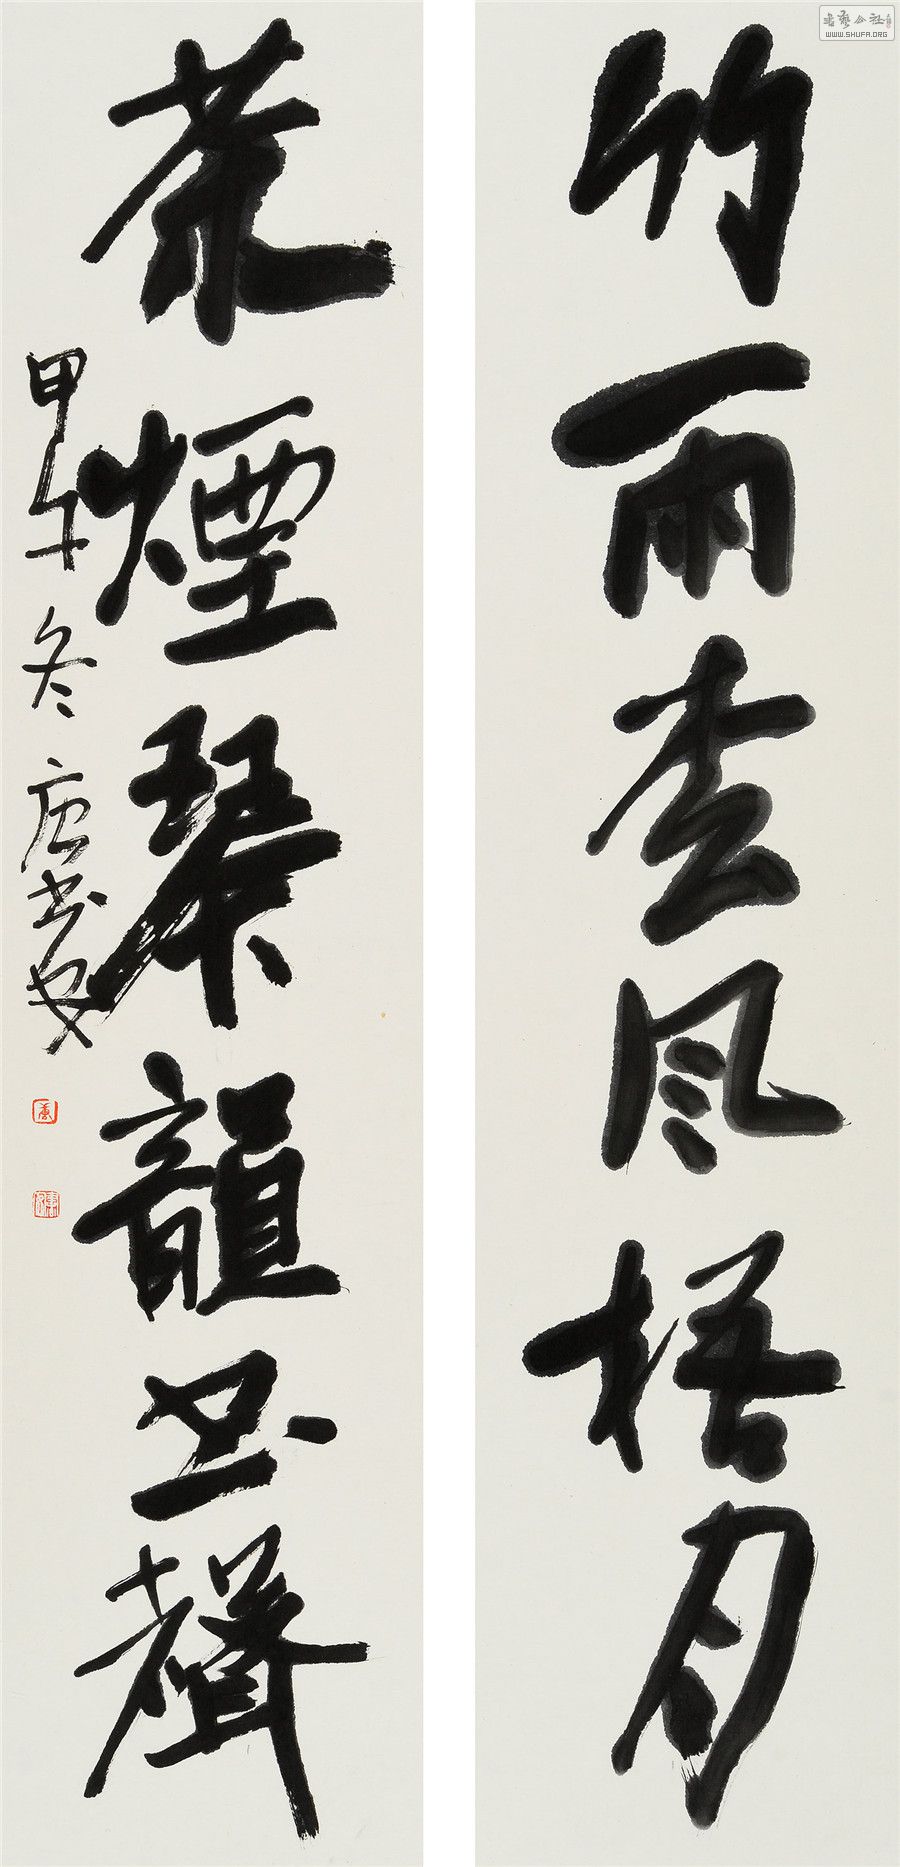 竹雨松风梧月
茶煙琴韻书聲
甲午冬唐书安
书艺公社
WWW.SHUFA.ORG